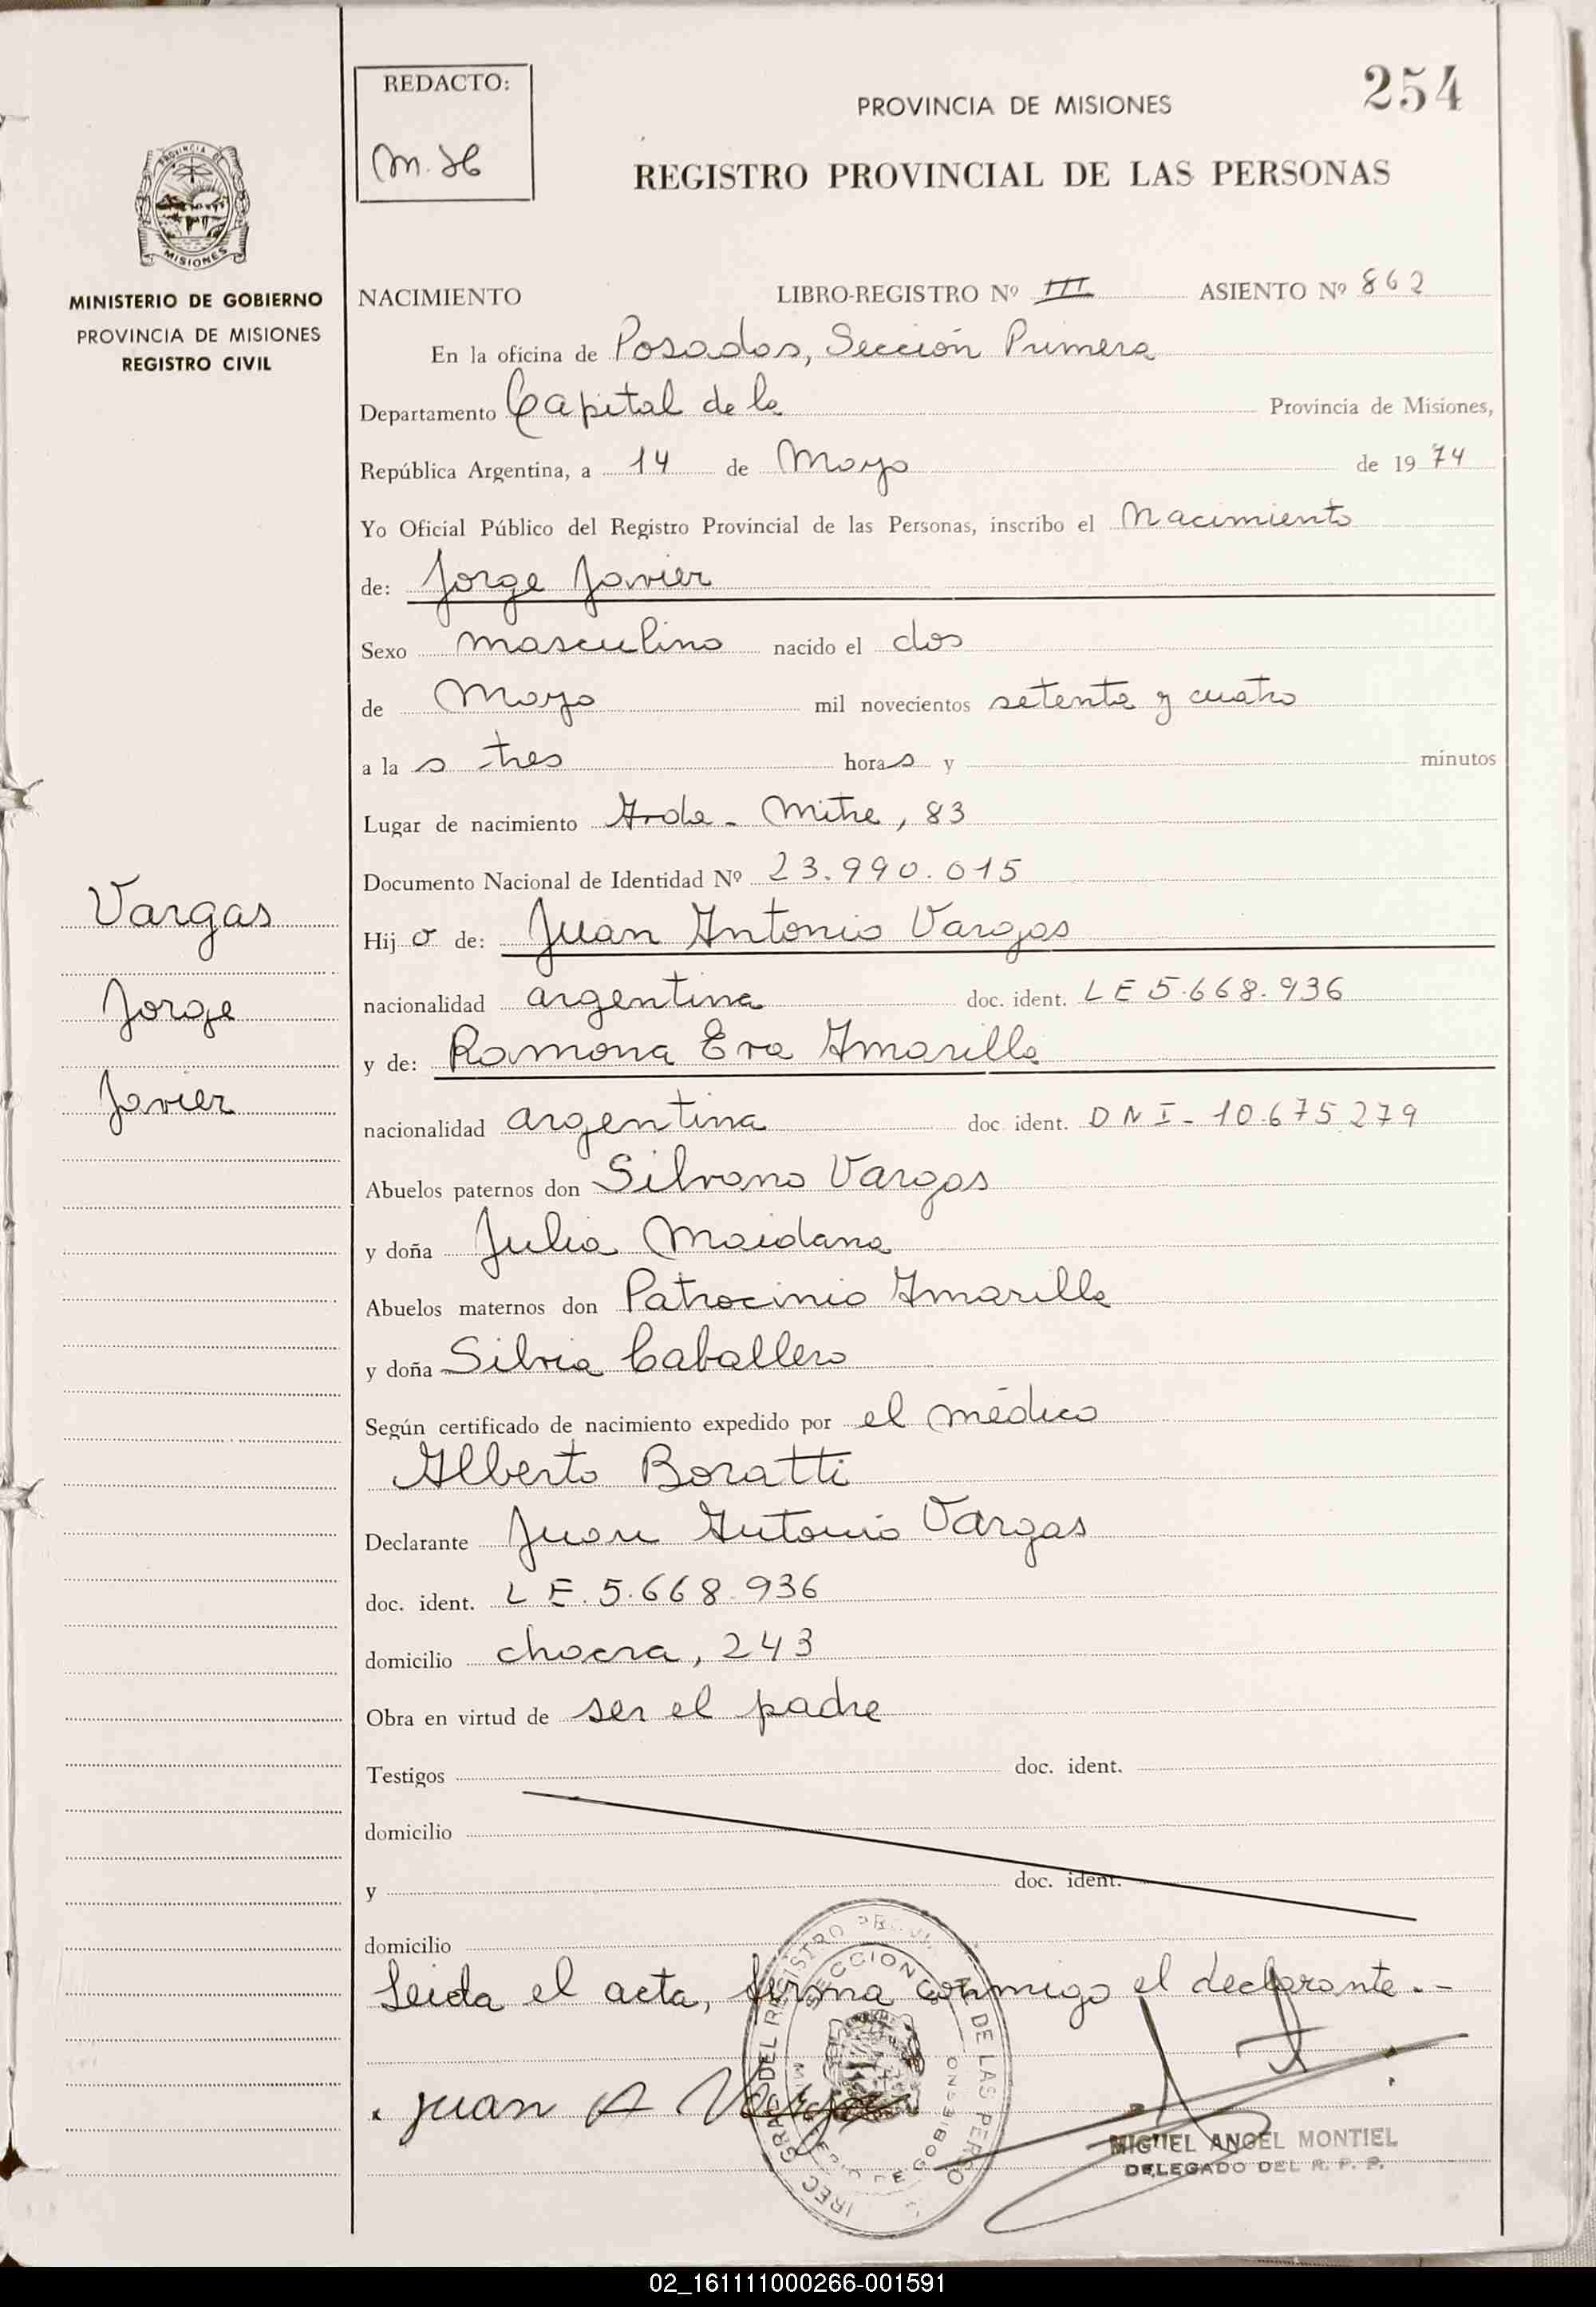 REDACTO:
M. H
PROVINCIA DE MISIONES
254
REGISTRO PROVINCIAL DE LAS PERSONAS
PROVINCIA DE
MISIONES
MINISTERIO DE GOBIERNO
PROVINCIA DE MISIONES
REGISTRO CIVIL
NACIMIENTO LIBRO-REGISTRO Nº III ASIENTO Nº 862
En la oficina de Posadas, Sección Primera
Departamento Capital de la Provincia de Misiones,
República Argentina, a 14 de Mayo de 1974
Yo Oficial Público del Registro Provincial de las Personas, inscribo el Nacimiento
de: Jorge Javier
Sexo masculino nacido el dos
de Mayo mil novecientos setenta y cuatro
a la s tres horas y minutos
Lugar de nacimiento Avda - Mitre, 83
Documento Nacional de Identidad Nº 23.990.015
Vargas
Jorge
Javier
Hijo de: Juan Antonio Vargas
nacionalidad argentina doc. ident. LE 5.668.936
y de: Ramona Eva Amarilla
nacionalidad argentina doc ident. DNI - 10.675.279
Abuelos paternos don Silvano Vargas
y doña Julia Maidana
Abuelos maternos don Patrocinio Amarilla
y doña Silvia Caballero
Según certificado de nacimiento expedido por el médico
Alberto Boratti
Declarante Juan Antonio Vargas
doc. ident. L E. 5.668.936
domicilio chacra, 243
Obra en virtud de ser el padre
Testigos doc. ident.
domicilio
y doc. ident.
domicilio
Leida el acta, firma conmigo el declarante.-
Juan A Vargas
MIGUEL ANGEL MONTIEL
DELEGADO DEL R. P. P.
02_161111000266-001591